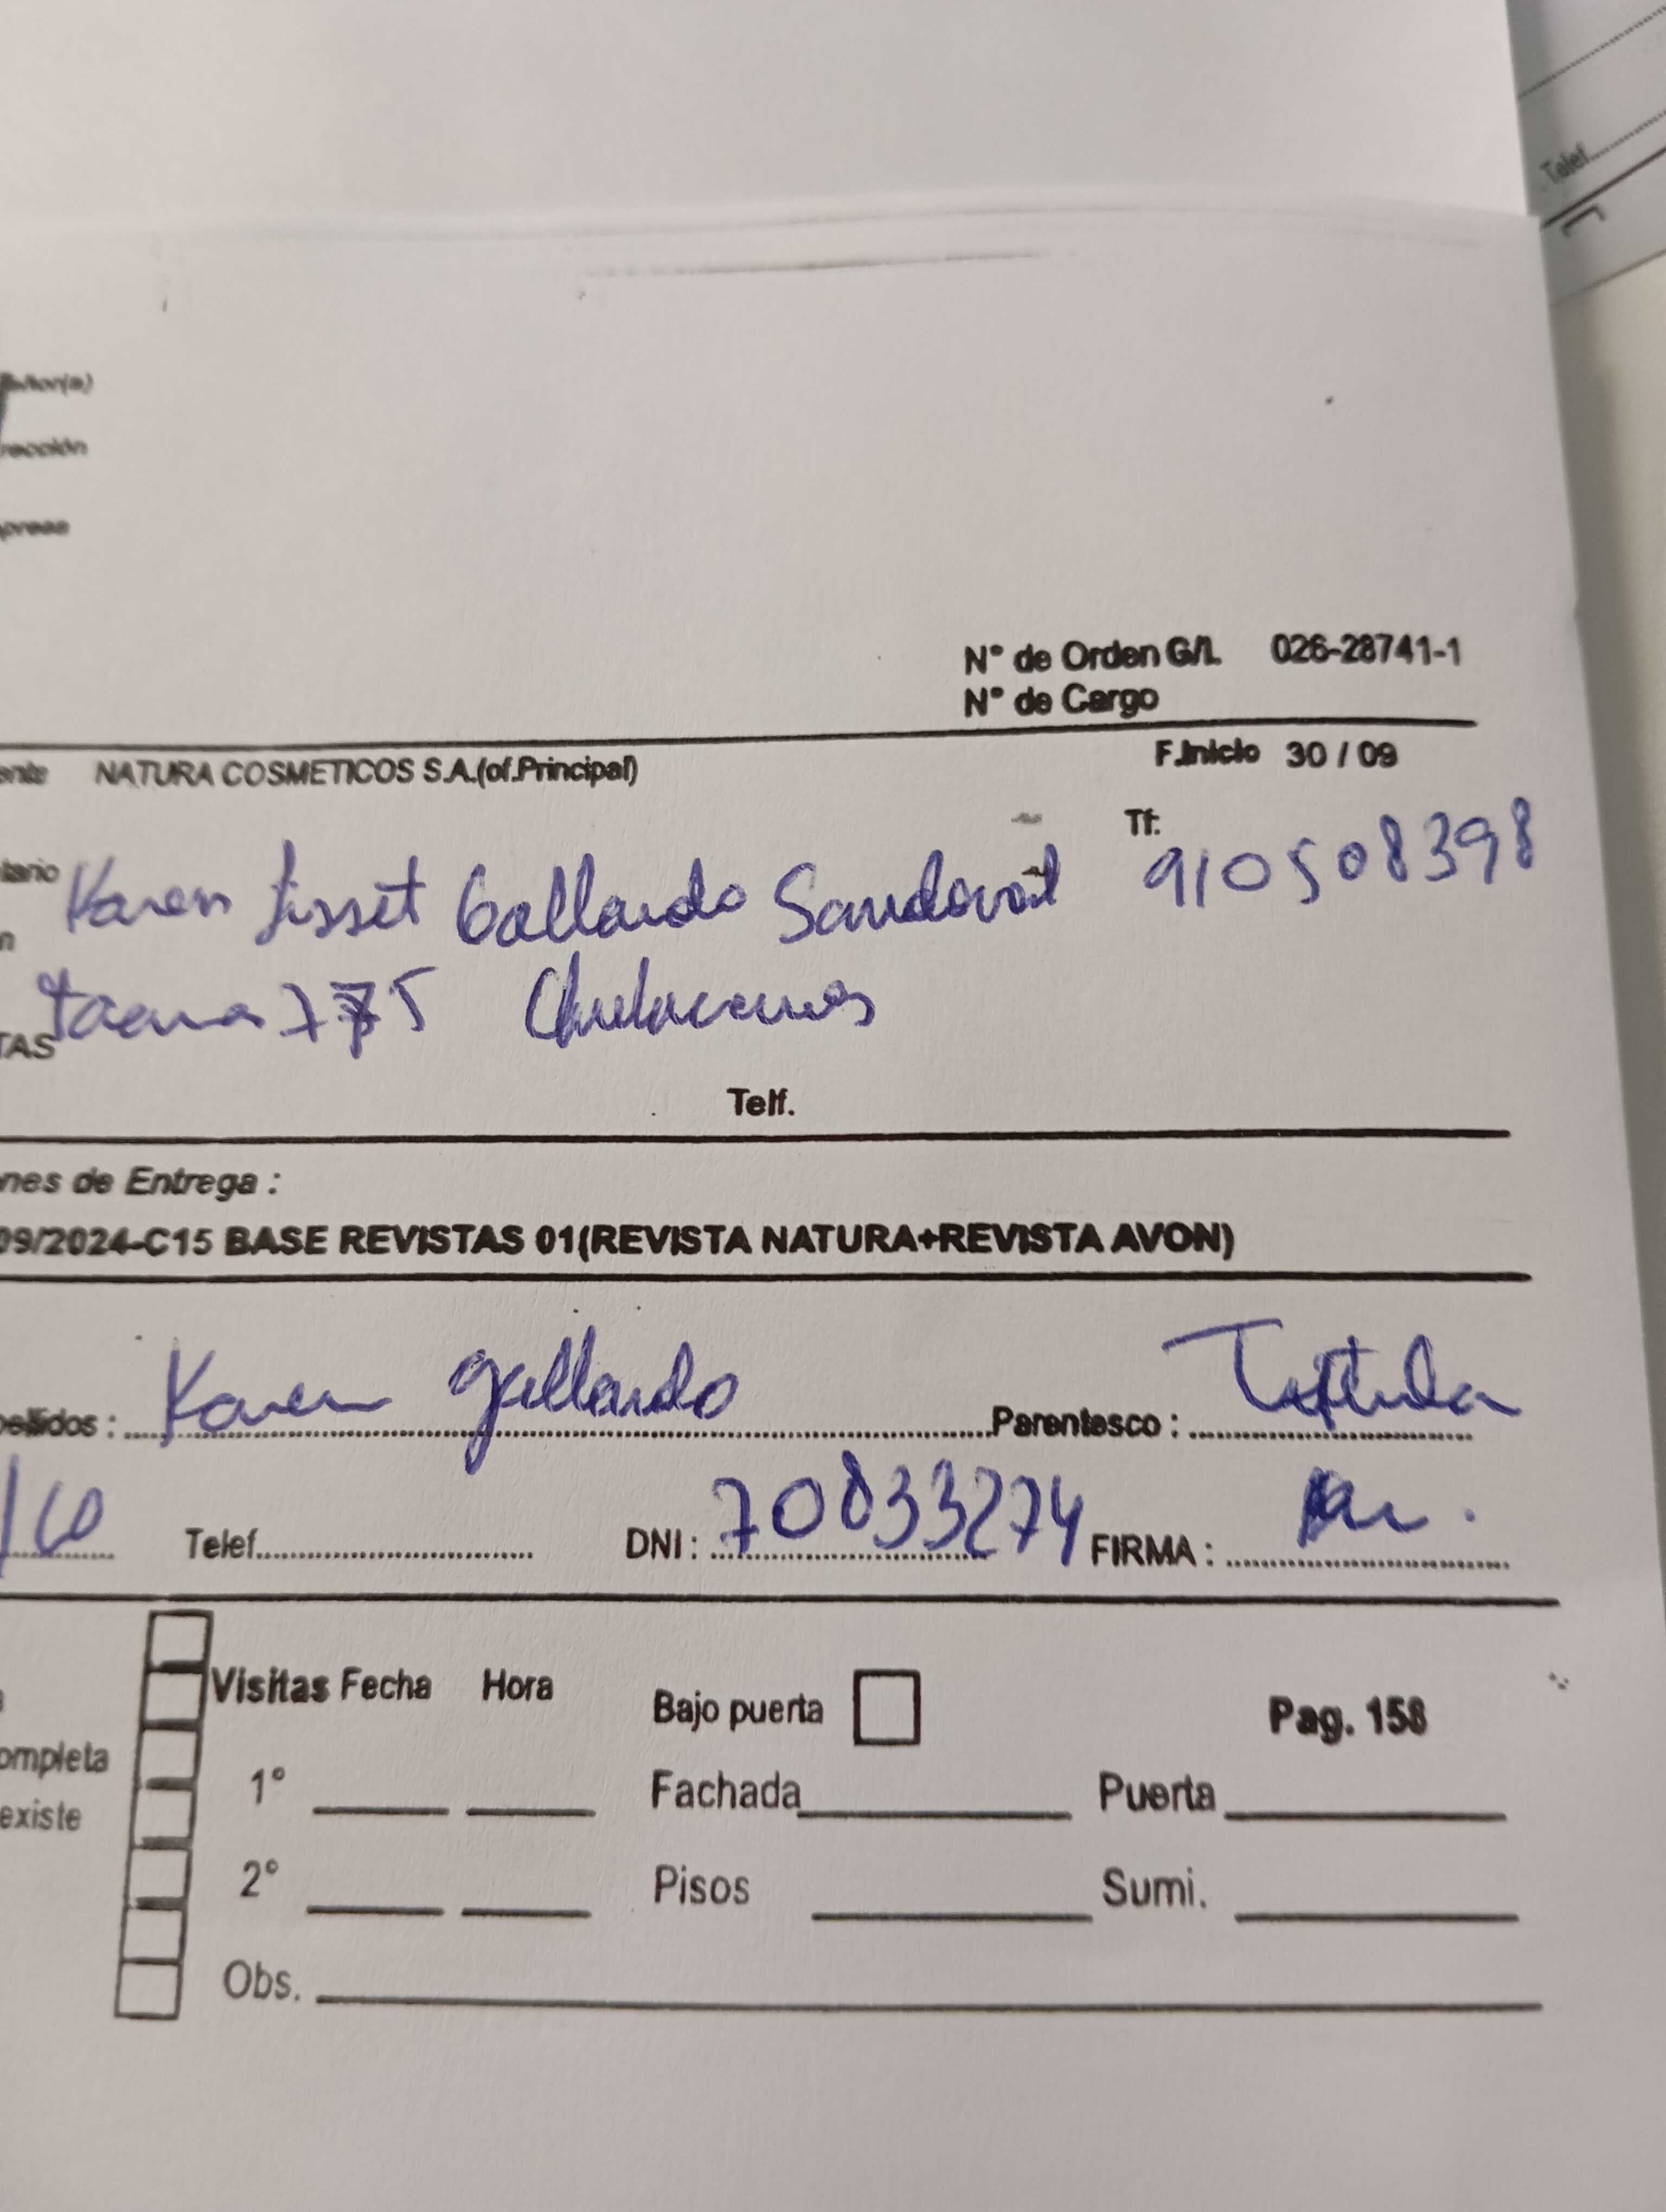 Telef.
Señor(a)
rección
presa
N° de Orden G/L 026-28741-1
N° de Cargo
ente NATURA COSMETICOS S.A.(of.Principal) F.Inicio 30 / 09
tario Karen Lisset Gallardo Sandoval Tf: 910508398
n
TAS tacna 775 Chulucanas
Telf.
nes de Entrega :
09/2024-C15 BASE REVISTAS 01(REVISTA NATURA+REVISTA AVON)
pellidos : Karen gallardo Parentesco :
/10 Telef. DNI : 70833274 FIRMA :
Visitas Fecha Hora Bajo puerta Pag. 158
ompleta
1° Fachada Puerta
existe
2° Pisos Sumi.
Obs.